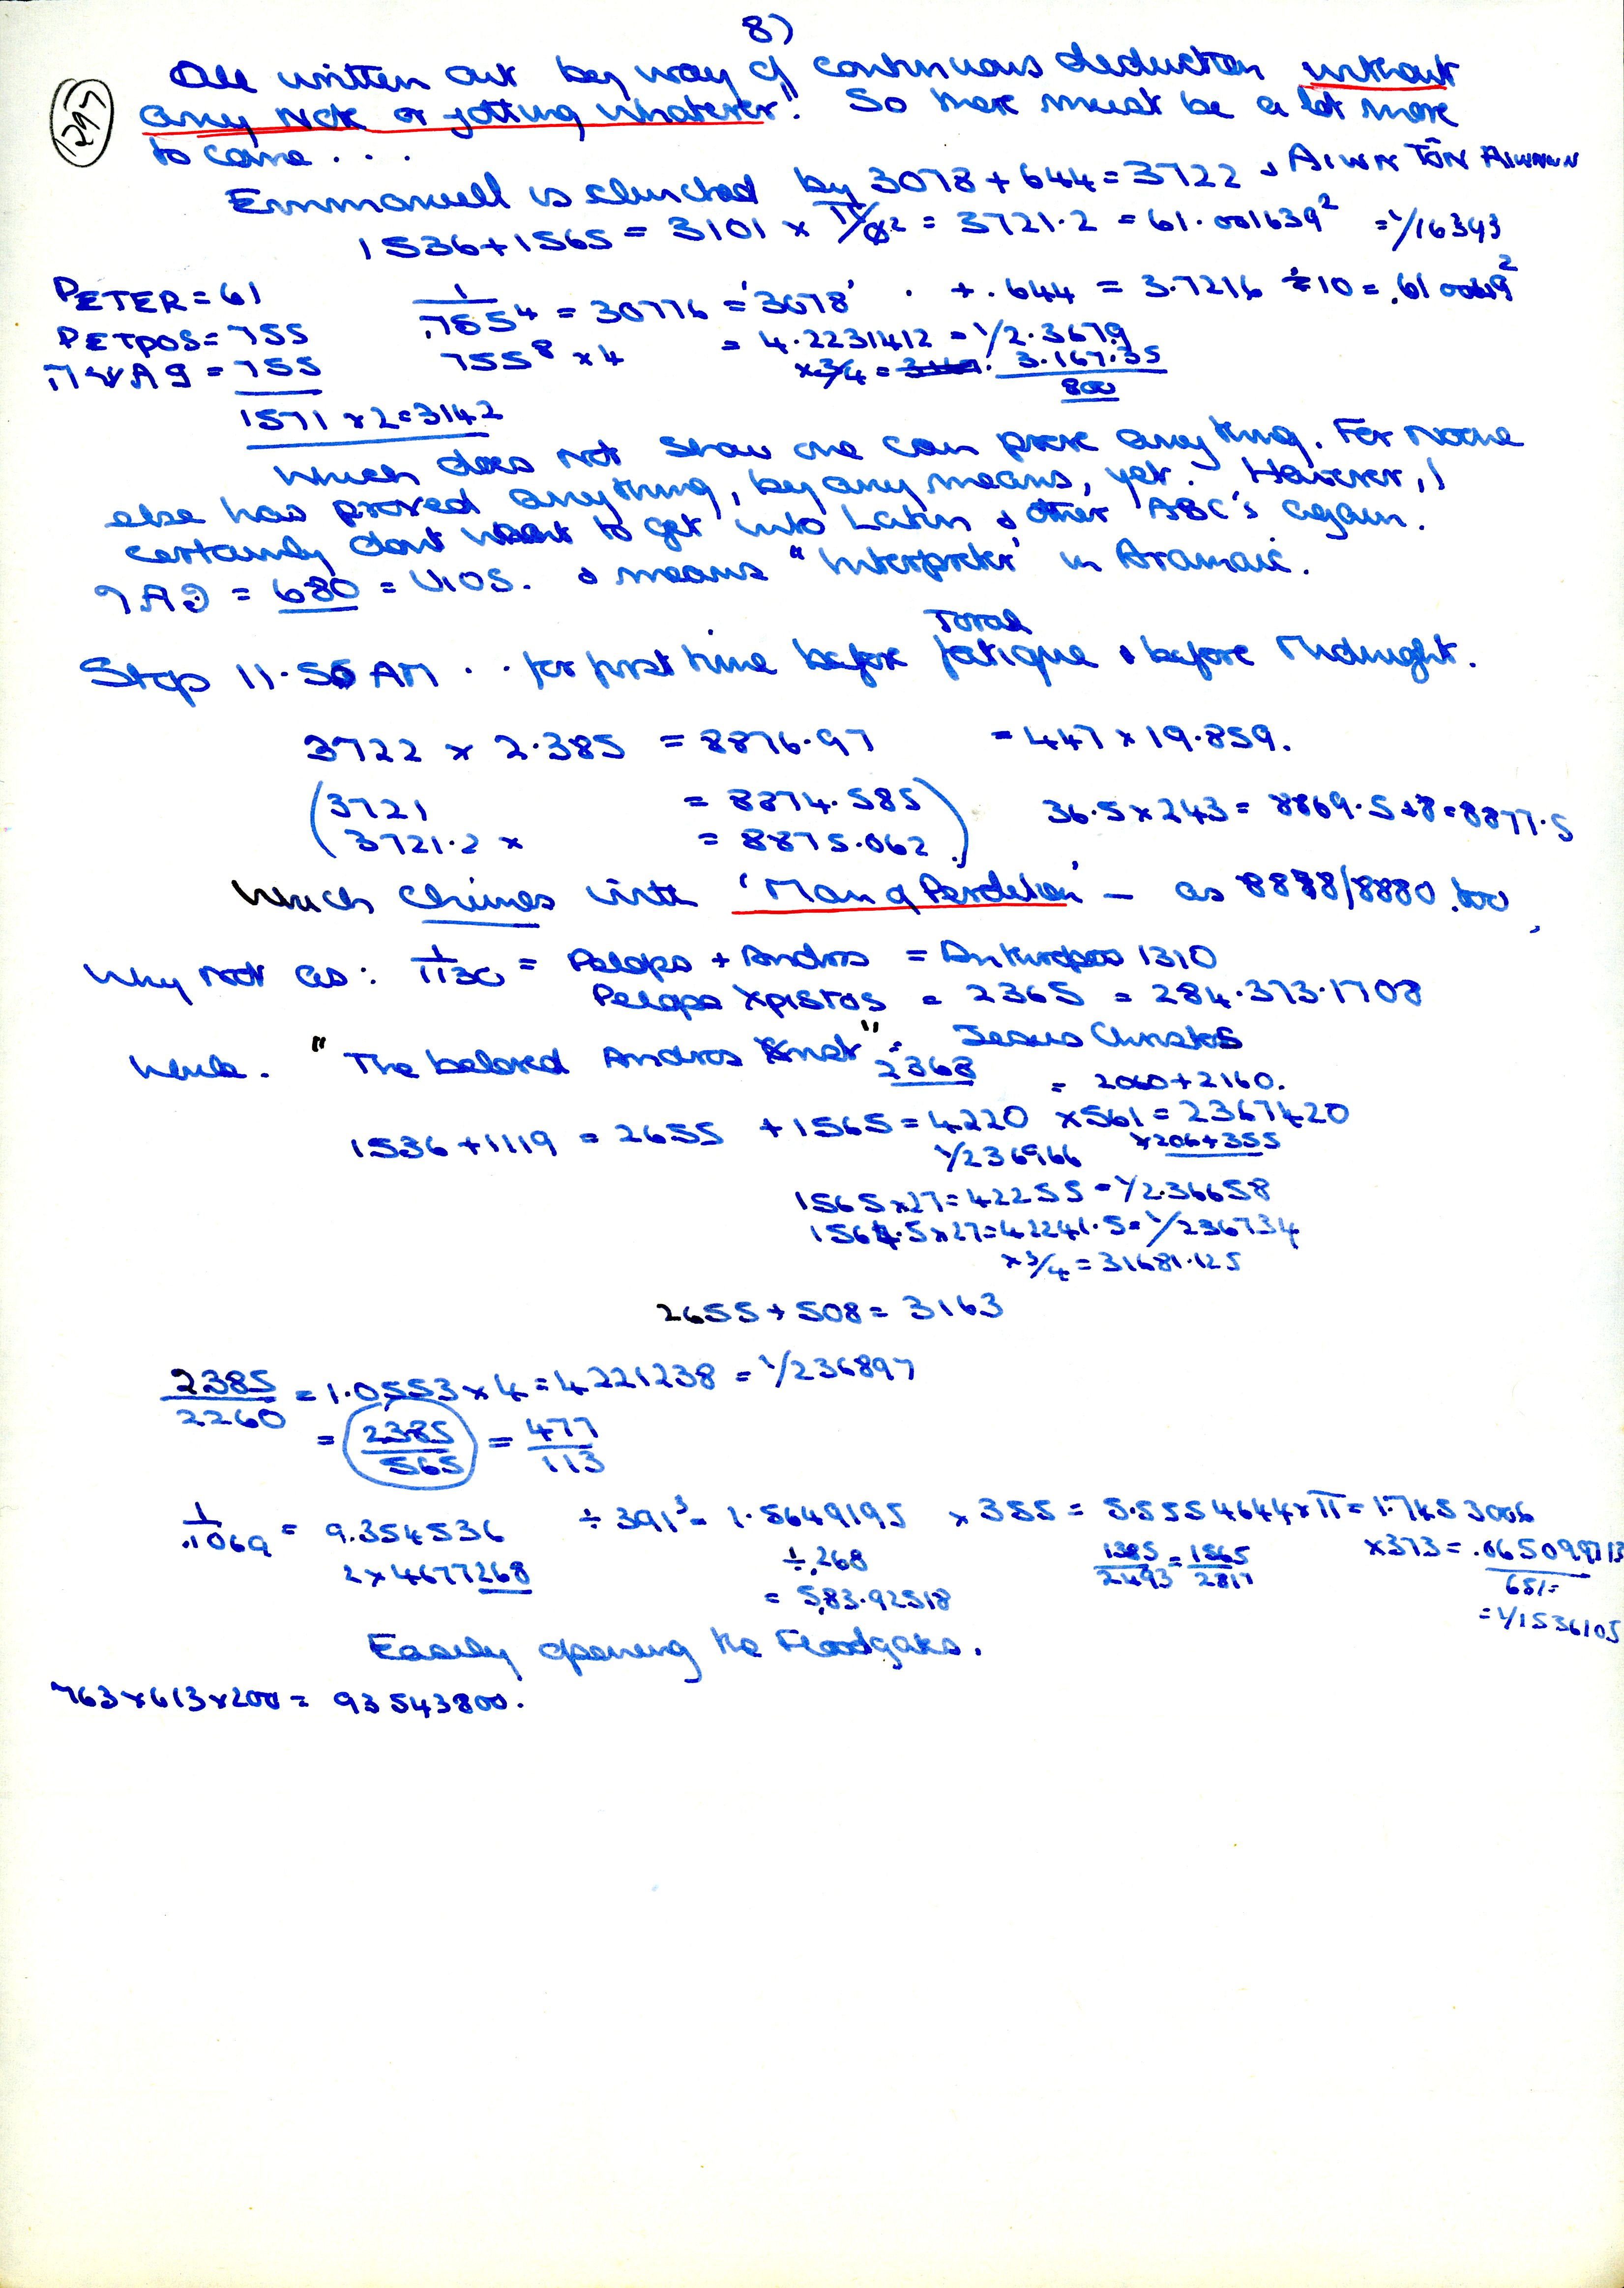 8)
297
All written out by way of continuous deduction without
any note or jotting whatever! So there must be a lot more
to come . . .
Emmanuell is clinched by 3078 + 644 = 3722 & AIWN TÔN AIWNWN
1536 + 1565 = 3101 × π/Ø² = 3721.2 = 61.001639² = 1/16393
PETER = 61
1/.755⁴ = 30776 = '3078' . + .644 = 3.7216 ÷ 10 = .610049²
PETPOS = 755
755⁸ × 4 = 4.2231412 = 1/2.3679
= 755
× 3/4 = 3.167.35
800
1571 × 2 = 3142
Which does not show one can prove anything. For noone
else has proved anything, by any means, yet. However, I
certainly dont want to get into Latin & other ABC's again.
= 680 = UIOS. & means "Interpreter" in Aramaic.
Total
Stop 11.56 AM . . for first time before fatigue & before Midnight.
3722 × 2.385 = 8876.97 = 447 × 19.859.
(3721 = 8874.585)
36.5 × 243 = 8869.5 + 8 = 8877.5
(3721.2 × = 8875.062)
Which chimes with 'Man of Perdition' – as 8878/8880 too
Why not as: 1/1130 = Pelops + Andros = Anthropos 1310
Pelops Xpistos = 2365 = 284.373.1708
While. "The beloved Andros Knot" = Jesus Christos
2368 = 2060 + 2160.
1536 + 1119 = 2655 + 1565 = 4220 × 561 = 2367420
1/236966 × 206 + 355
1565 × 27 = 42255 = 1/2.36658
1564.5 × 27 = 42241.5 = 1/236734
× 3/4 = 31681.125
2655 + 508 = 3163
2385/2260 = 1.0553 × 4 = 4.221238 = 1/236897
= 2385/565 = 477/113
1/.1069 = 9.354536 ÷ 391³ = 1.5649195 × 355 = 5.5554644 × π = 1.7453006
2 × 4677268 ÷ .268 1385/2493 = 1565/2817 × 373 = .065099713
= 583.92518 651=
= 1/1536105
Easily opening the Floodgates.
763 × 613 × 200 = 93543800.